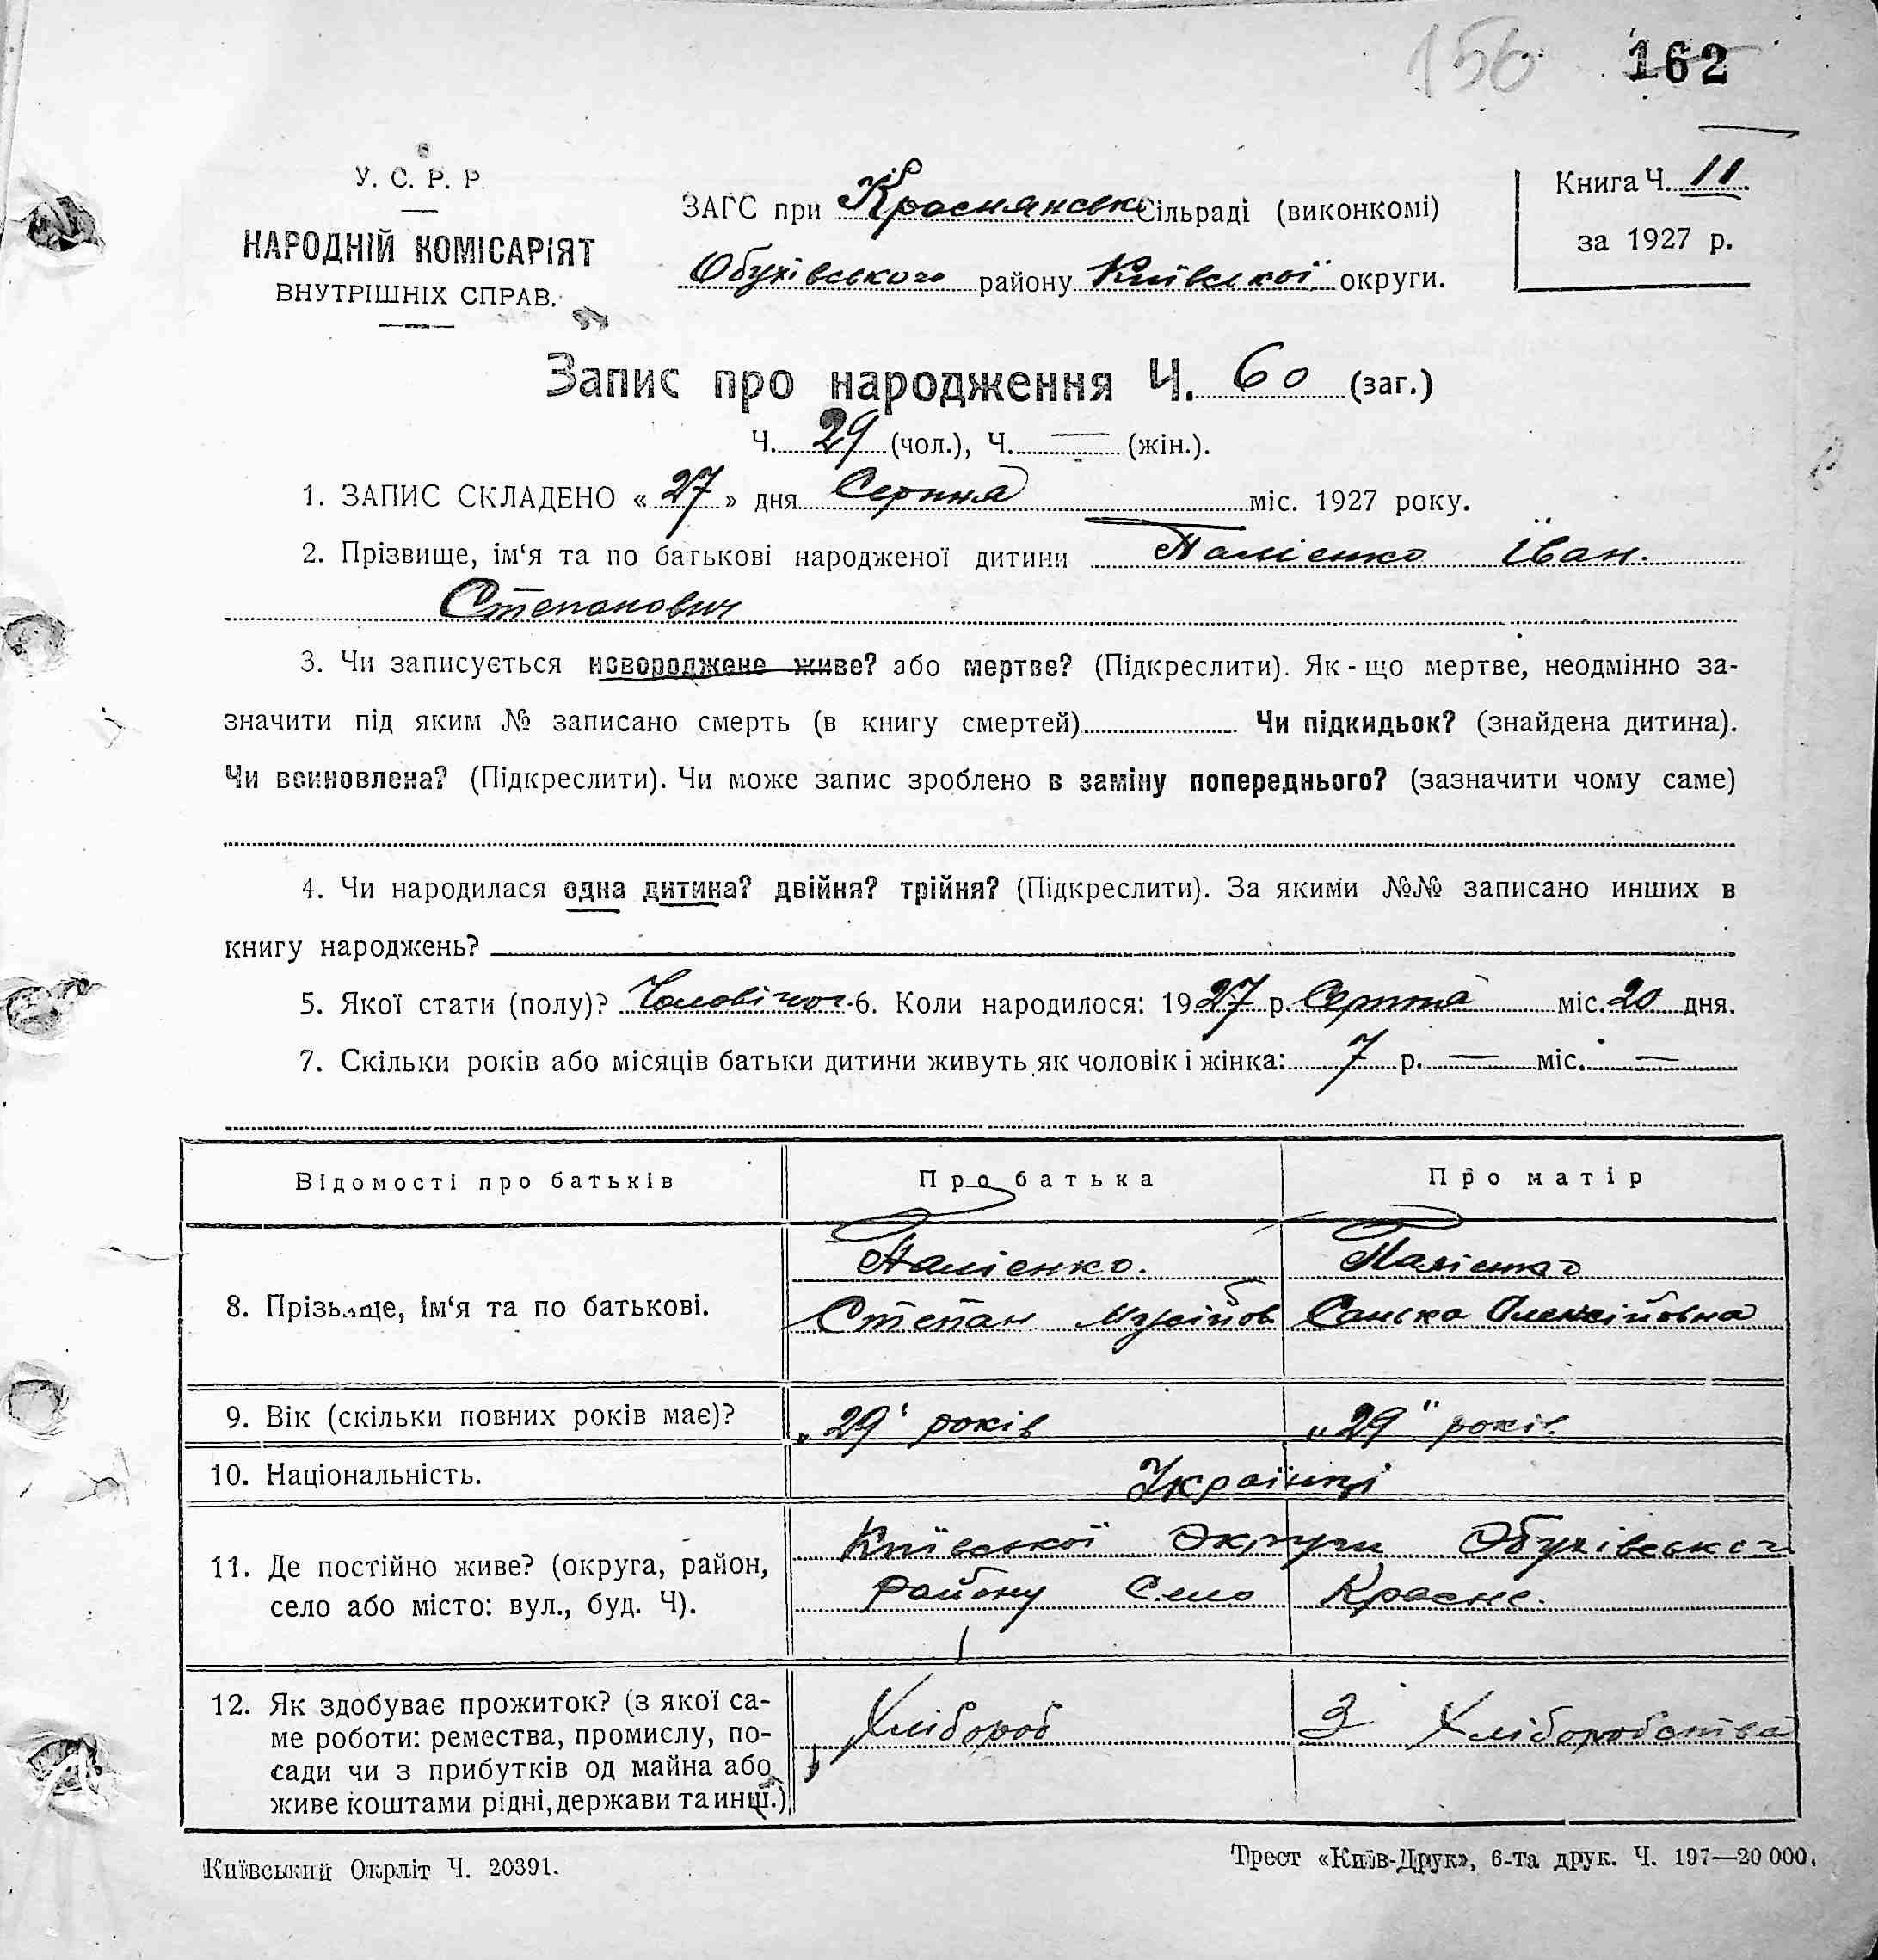 156 162
У. С. Р. Р.
НАРОДНІЙ КОМІСАРІЯТ
ВНУТРІШНІХ СПРАВ.
ЗАГС при Краснянськ Сільраді (виконкомі)
Обухівського району Київської округи.
Книга Ч. 11
за 1927 р.
Запис про народження Ч. 60 (заг.)
Ч. 29 (чол.), Ч. — (жін.).
1. ЗАПИС СКЛАДЕНО « 27 » дня Серпня міс. 1927 року.
2. Прізвище, ім‘я та по батькові народженої дитини Палієнко Іван.
Степанович
3. Чи записується новороджене живе? або мертве? (Підкреслити). Як - що мертве, неодмінно за-
значити під яким № записано смерть (в книгу смертей) Чи підкидьок? (знайдена дитина).
Чи всиновлена? (Підкреслити). Чи може запис зроблено в заміну попереднього? (зазначити чому саме)
4. Чи народилася одна дитина? двійня? трійня? (Підкреслити). За якими №№ записано инших в
книгу народжень?
5. Якої стати (полу)? Чоловічої. 6. Коли народилося: 1927 р. Серпня міс. 20 дня.
7. Скільки років або місяців батьки дитини живуть як чоловік і жінка: 7 р. — міс. —
Відомості про батьків Про батька Про матір
Палієнко. Палієнко
8. Прізвище, ім‘я та по батькові. Степан Мусійов Санька Олексійовна
9. Вік (скільки повних років має)? „29" років „29" років.
10. Національність. Українці
Київської Округи Обухівського
11. Де постійно живе? (округа, район,
село або місто: вул., буд. Ч). району Село Красне.
12. Як здобуває прожиток? (з якої са-
ме роботи: ремества, промислу, по- Хлібороб З Хліборобства
сади чи з прибутків од майна або
живе коштами рідні, держави та инш.)
Київський Окрліт Ч. 20391.
Трест «Київ-Друк», 6-та друк. Ч. 197—20 000.